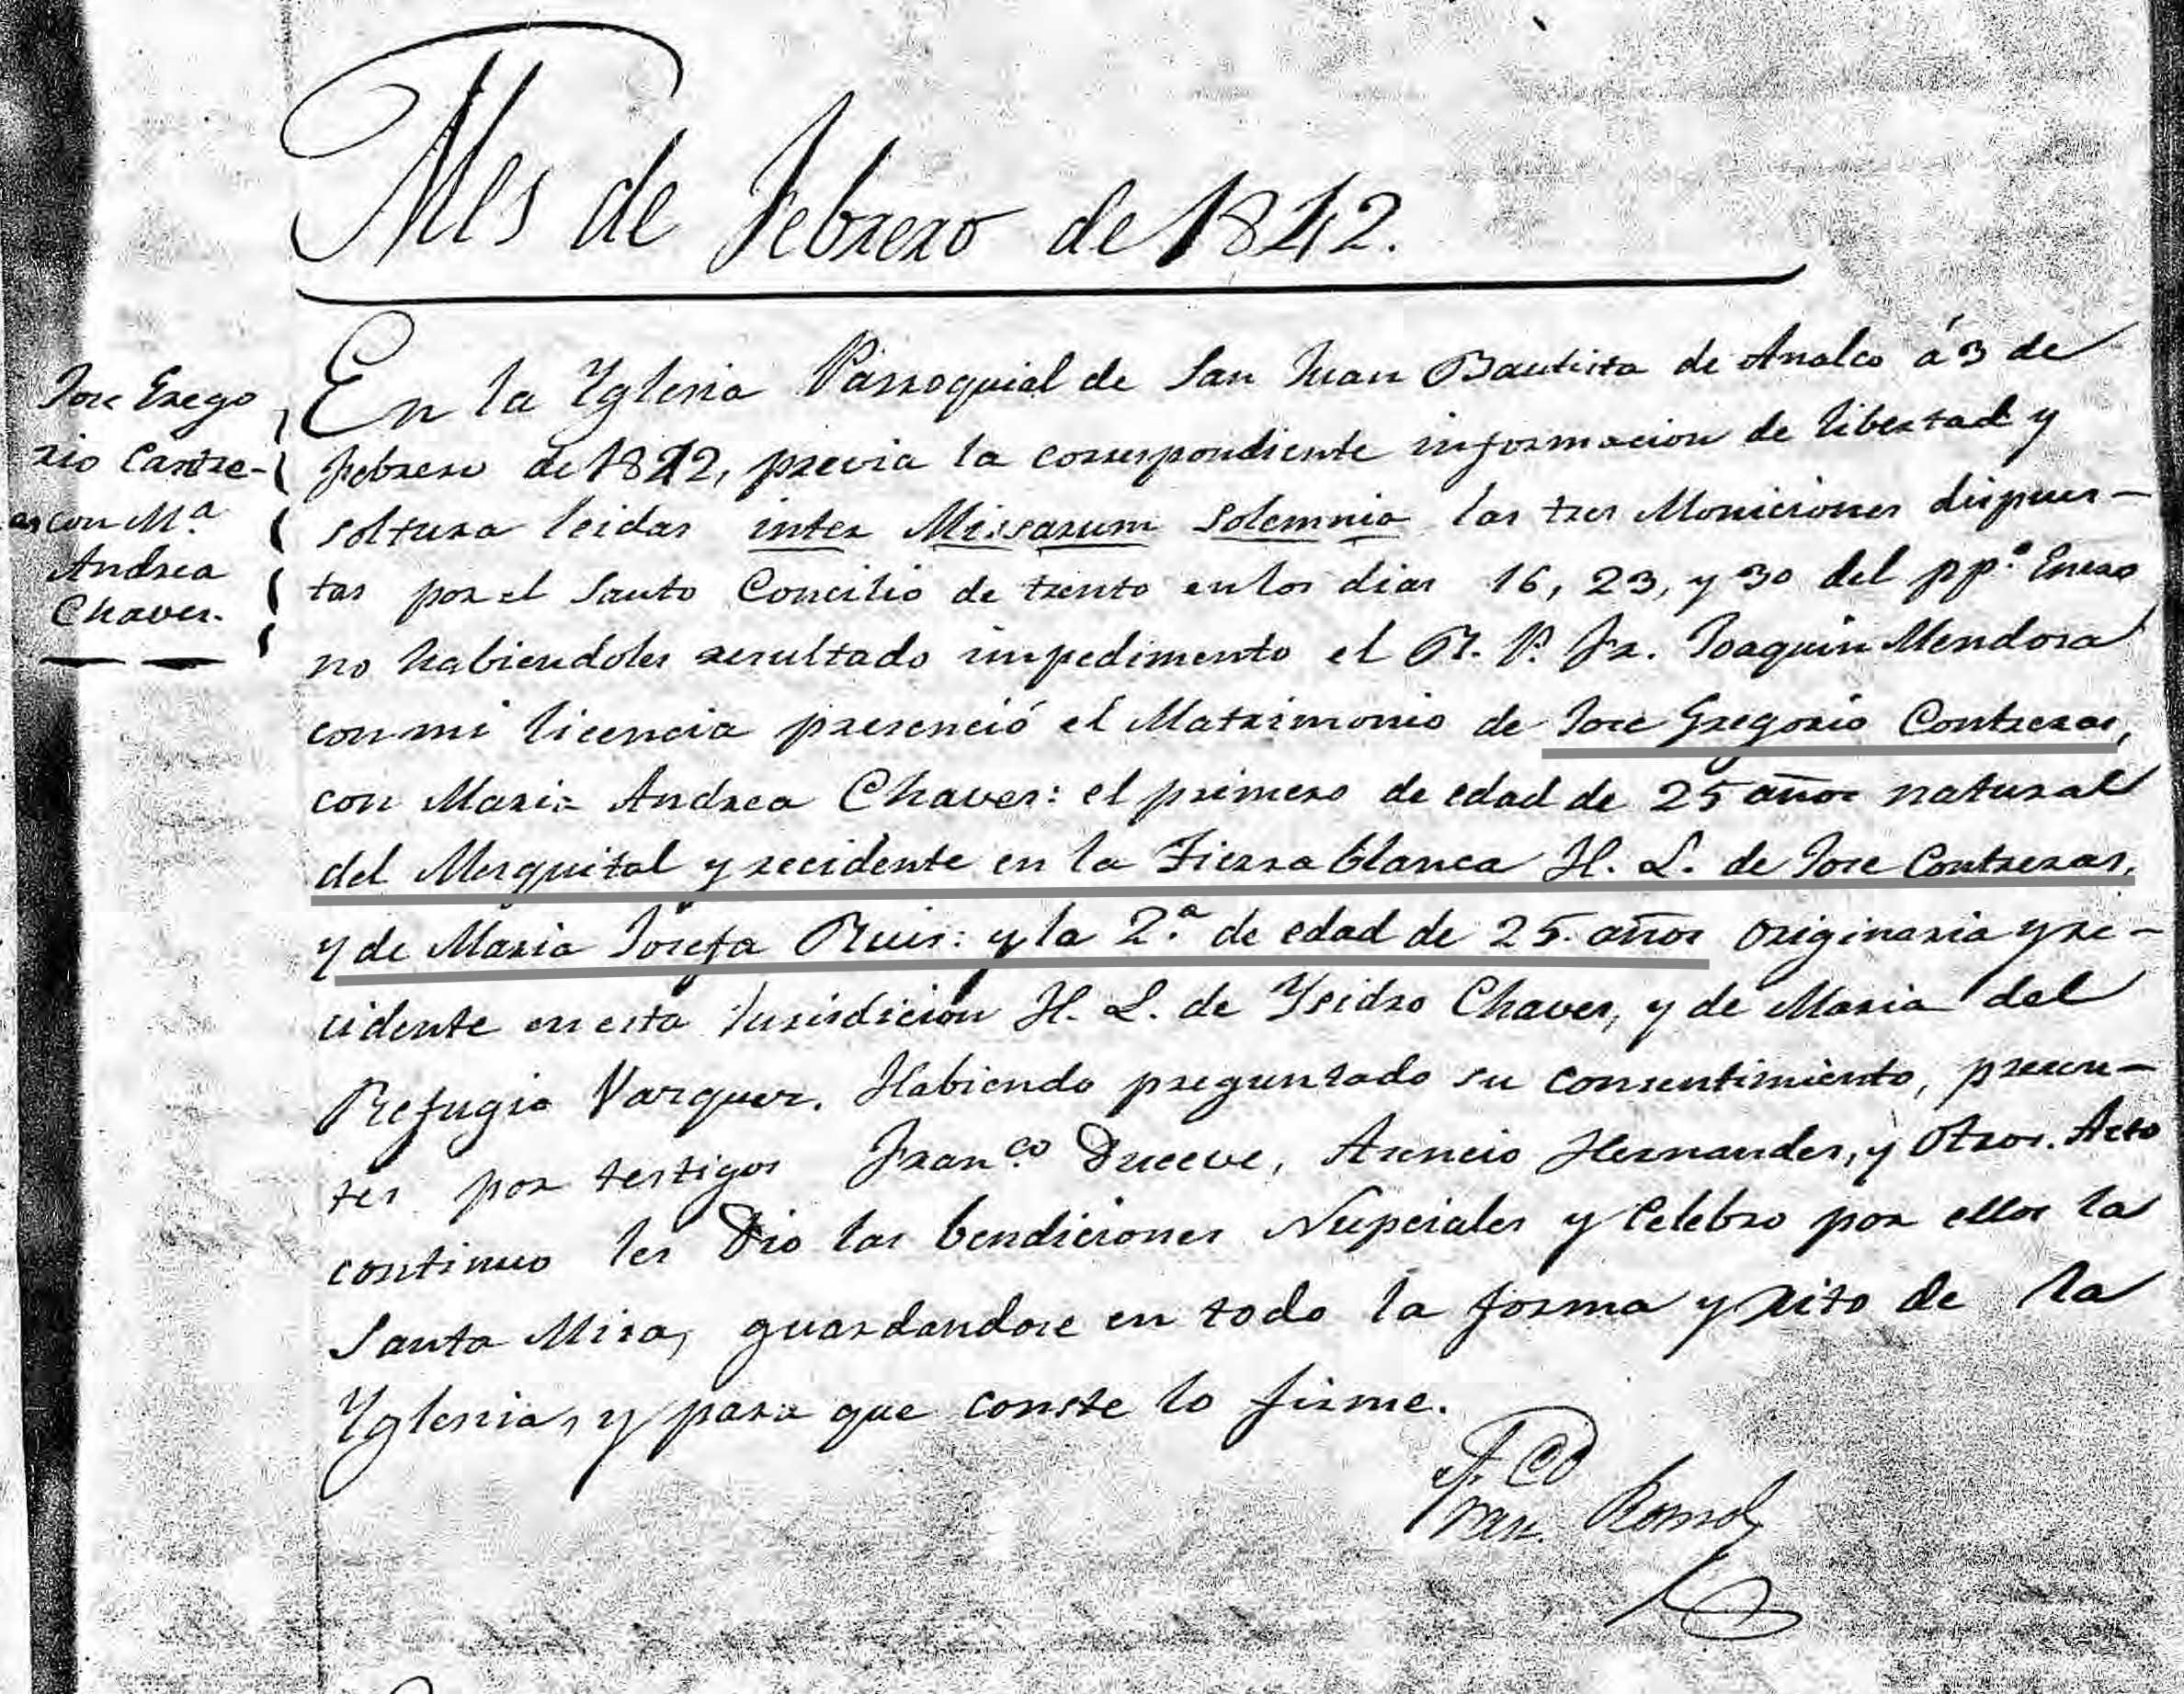 Mes de Febrero de 1842.
Jose Grego
rio Contre-
as con M.ª
Andrea
Chaves.
En la Yglesia Parroquial de San Juan Bautista de Analco á 3 de
Febrero de 1842, previa la correspondiente informacion de libertad y
soltura leidas inter Missarum solemnia las tres Moniciones dispues-
tas por el Santo Concilio de trento en los dias 16, 23, y 30 del pp.º Enero
no habiendoles resultado impedimento el R. P. Fr. Joaquin Mendosa
con mi licencia presenció el Matrimonio de Jose Gregorio Contreras,
con Maria Andrea Chaves: el primero de edad de 25 años natural
del Mesquital y recidente en la Tierra blanca H. L. de Jose Contreras,
y de Maria Josefa Ruis: y la 2.ª de edad de 25. años originaria y re-
cidente en esta Jurisdicion H. L. de Ysidro Chaves, y de Maria del
Refugio Vasques. Habiendo preguntado su consentimiento, presen-
tes por testigos Fran.co Hernandes, y otros. Acto
continuo les Dio las bendiciones Nupciales y Celebro por ellos la
Santa Misa, guardandose en todo la forma y rito de la
Yglesia, y para que conste lo firme.